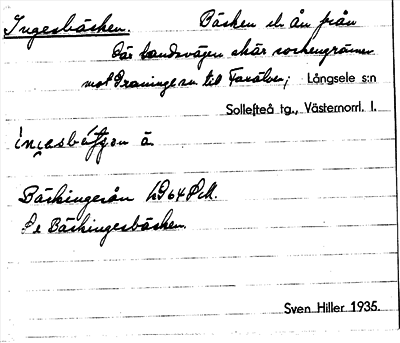 Ingesbäcken. Bäcken el. ån från
där landsvägen skär sockengränsen
mot Graninge ned till Faxälven; Långsele s:n
Sollefteå tg., Västernorrl. l.
Bäckingesån
Se Bäckingesbäcken.
Sven Hiller 1935.